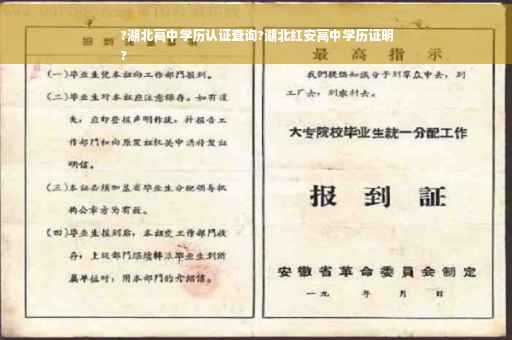 ?湖北高中学历认证查询?湖北红安高中学历证明
?
(一)毕业生凭本证向工作部门报到。
(二)毕业生对本证应注意保存。如有遗
失,应即登报声明作废,并报告工
作部门和向原发证机关申请补发证
明信。
(三)本证必须加盖省毕业生分配领导机
构公章方为有效。
(四)毕业生报到后,本证交工作部门收
存;上级部门继续转派毕业生到所
属单位时,用本部门的介绍信。
最高指示
我们提倡知识分子到群众中去,到
工厂去,到农村去。
大专院校毕业生統一分配工作
报到証
安徽省革命委員会制定
一九 年 月 日